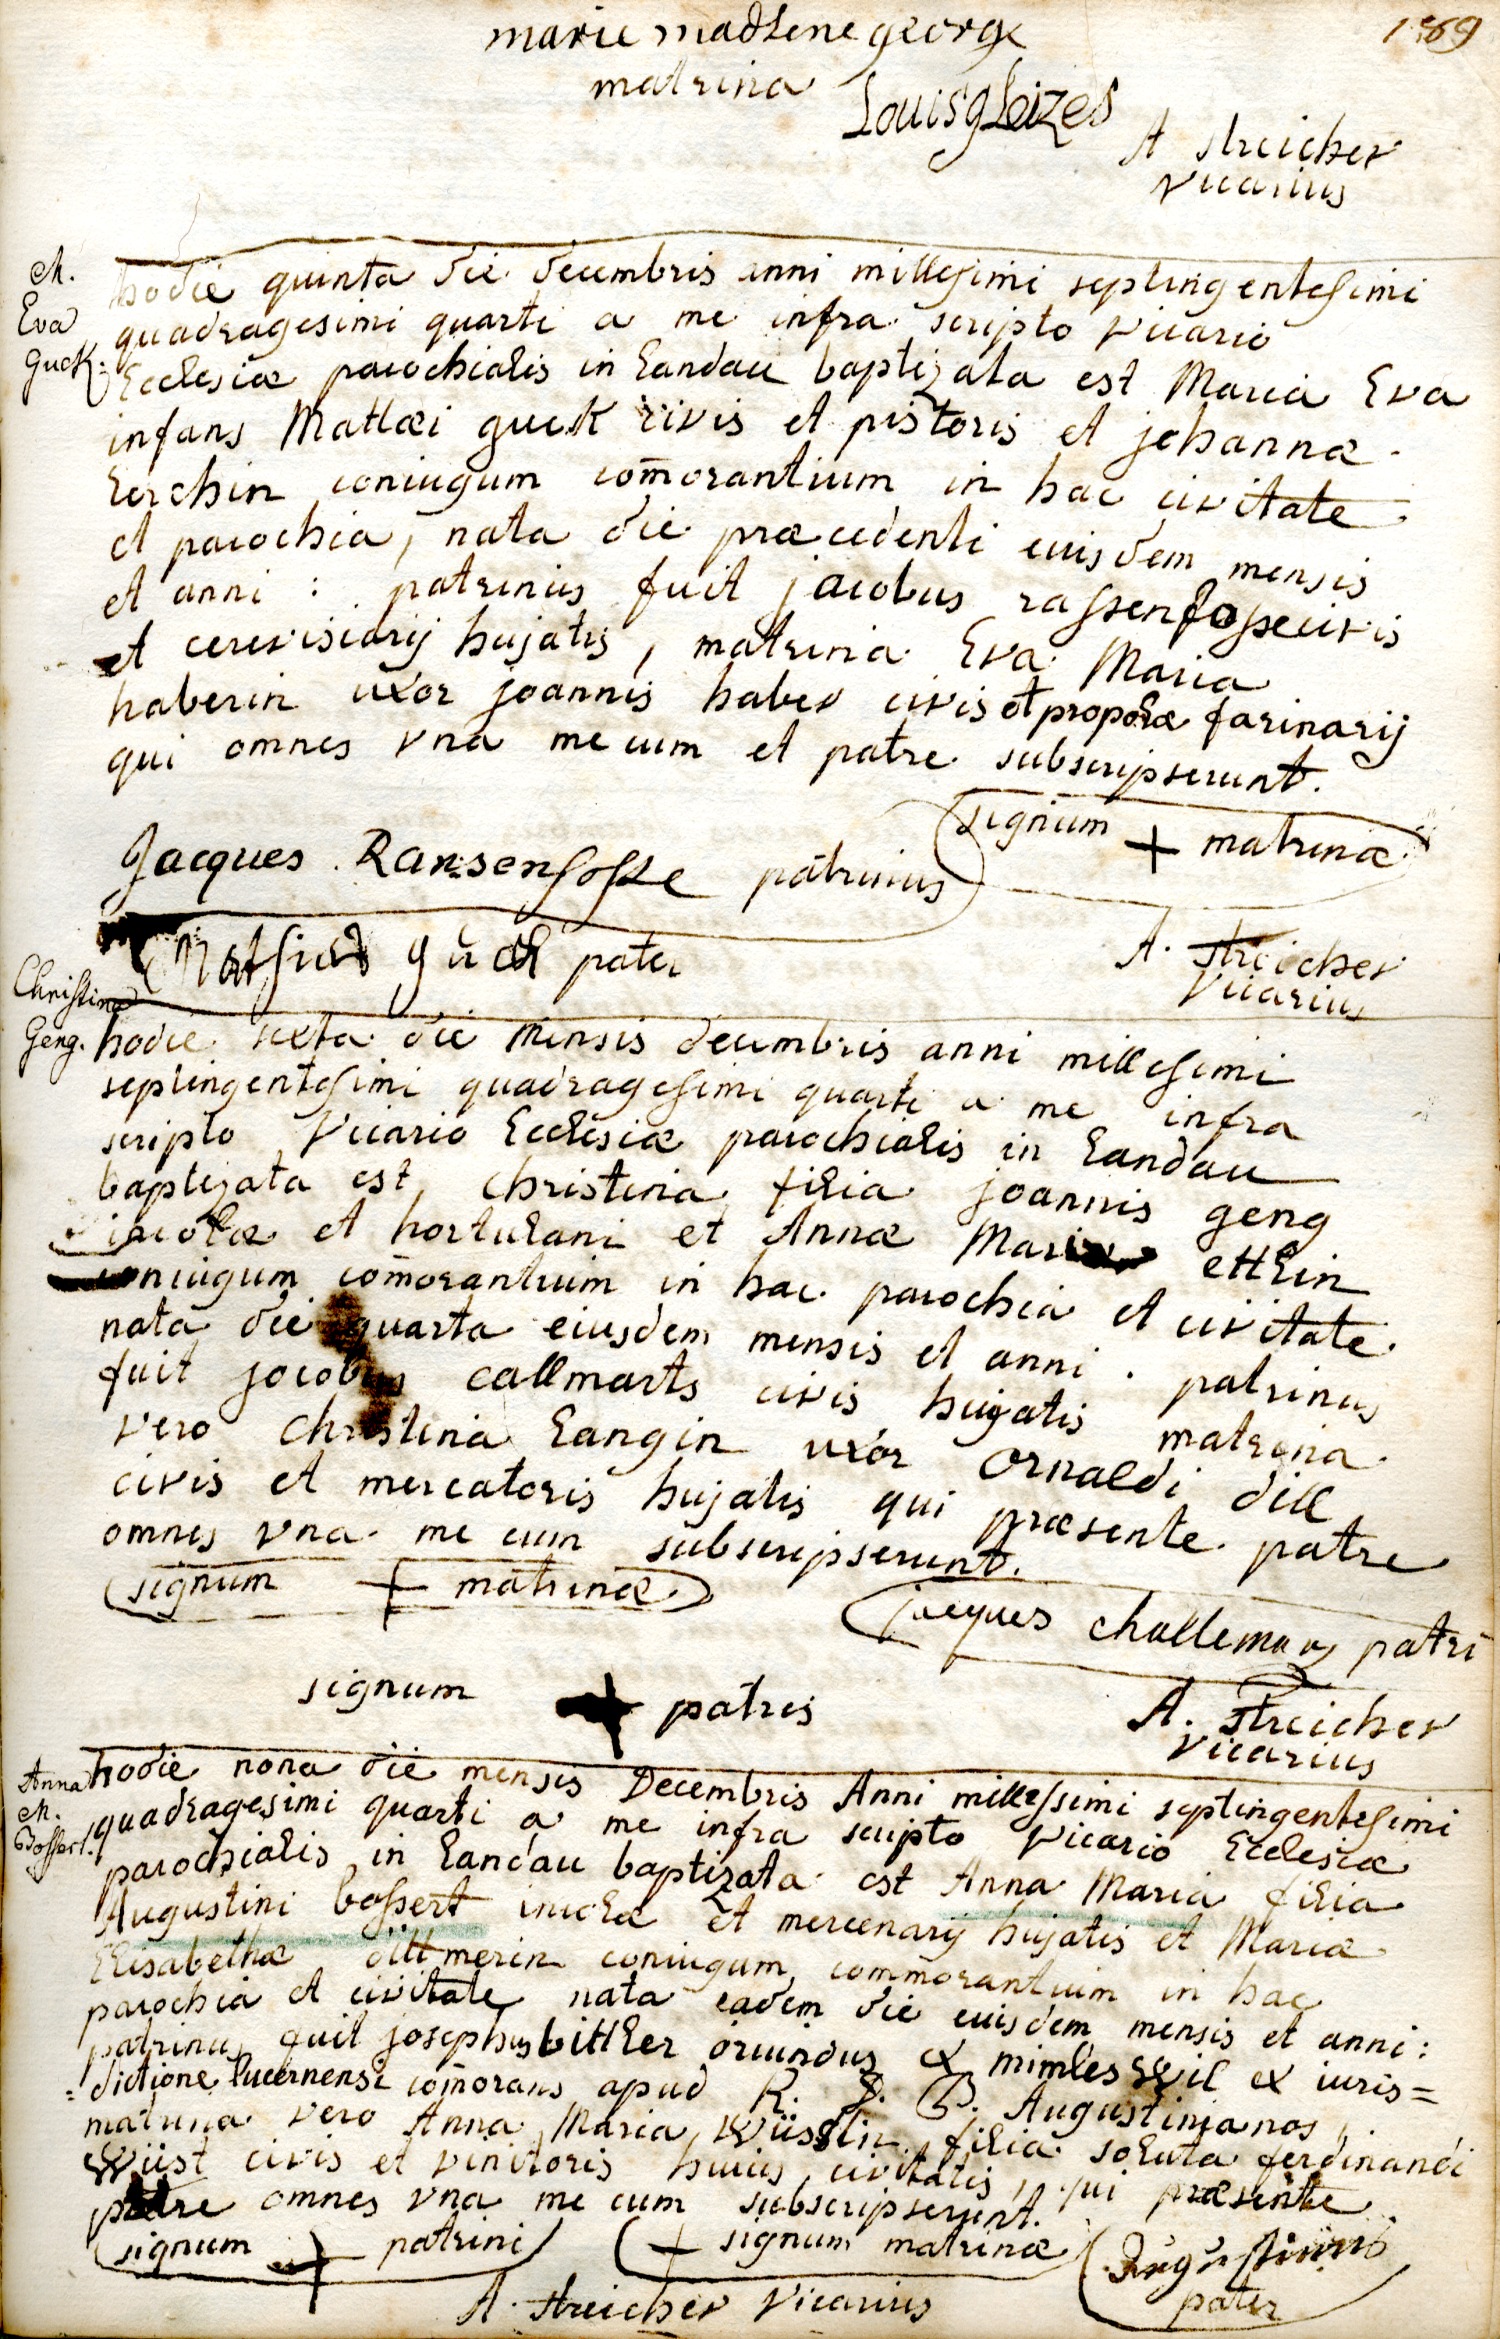 marie madlene george
189
matrina
Louis gleizes
A streicher
vicarius
M.
Eva
Guck.
hodie quinta die decembris anni millesimi septingentesimi
quadragesimi quarti a me infra scripto vicario
Ecclesiæ parochialis in Landau baptizata est Maria Eva
infans Mattæi guck civis et pistoris et johannæ
Lerchin coniugum com̄orantium in hac civitate
et parochia, nata die præcedenti eiusdem mensis
et anni : patrinus fuit jacobus rassenfosse civis
et cerevisiarij hujatis, matrina Eva Maria
haberin uxor joannis haber civis et propolæ farinarij
qui omnes vna mecum et patre subscripserunt.
signum + matrinæ
Jacques Ransenfosse patrinus
Matsias guck pater
A. streicher
vicarius
Christina
Geng.
hodie sexta die mensis decembris anni millesimi
septingentesimi quadragesimi quarti a me infra
scripto vicario Ecclesiæ parochialis in Landau
baptizata est christina filia joannis geng
incolæ et hortulani et Annæ Mariæ ettlin
coniugum com̄orantium in hac parochia et civitate
nata die quarta eiusdem mensis et anni . patrinus
fuit jacobus callmarts civis hujatis matrina
vero christina Langin uxor arnaldi dill
civis et mercatoris hujatis qui præsente patre
omnes vna me cum subscripserunt.
signum + matrinæ
jacques challemar patri
signum + patris
A. streicher
vicarius
Anna
M.
Bossert.
hodie nona die mensis Decembris Anni millessimi septingentesimi
quadragesimi quarti a me infra scripto vicario Ecclesiæ
parochialis in Landau baptizata est Anna Maria filia
Augustini bossert incolæ et mercenarij hujatis et Mariæ
Elisabethæ dittmerin coniugum commorantium in hac
parochia et civitate nata eadem die eiusdem mensis et anni :
patrinus fuit josephus bittler oriundus ex mimleswil ex iuris=
=dictione Lucernensi com̄orans apud R. P. P. Augustinianos,
matrina vero Anna Maria wüstin filia soluta ferdinandi
wüst civis et vinitoris huius civitatis, qui præsente
patre omnes vna me cum subscripserunt.
signum + patrini
+ signum matrinæ
Augustinus
pater
A. streicher vicarius